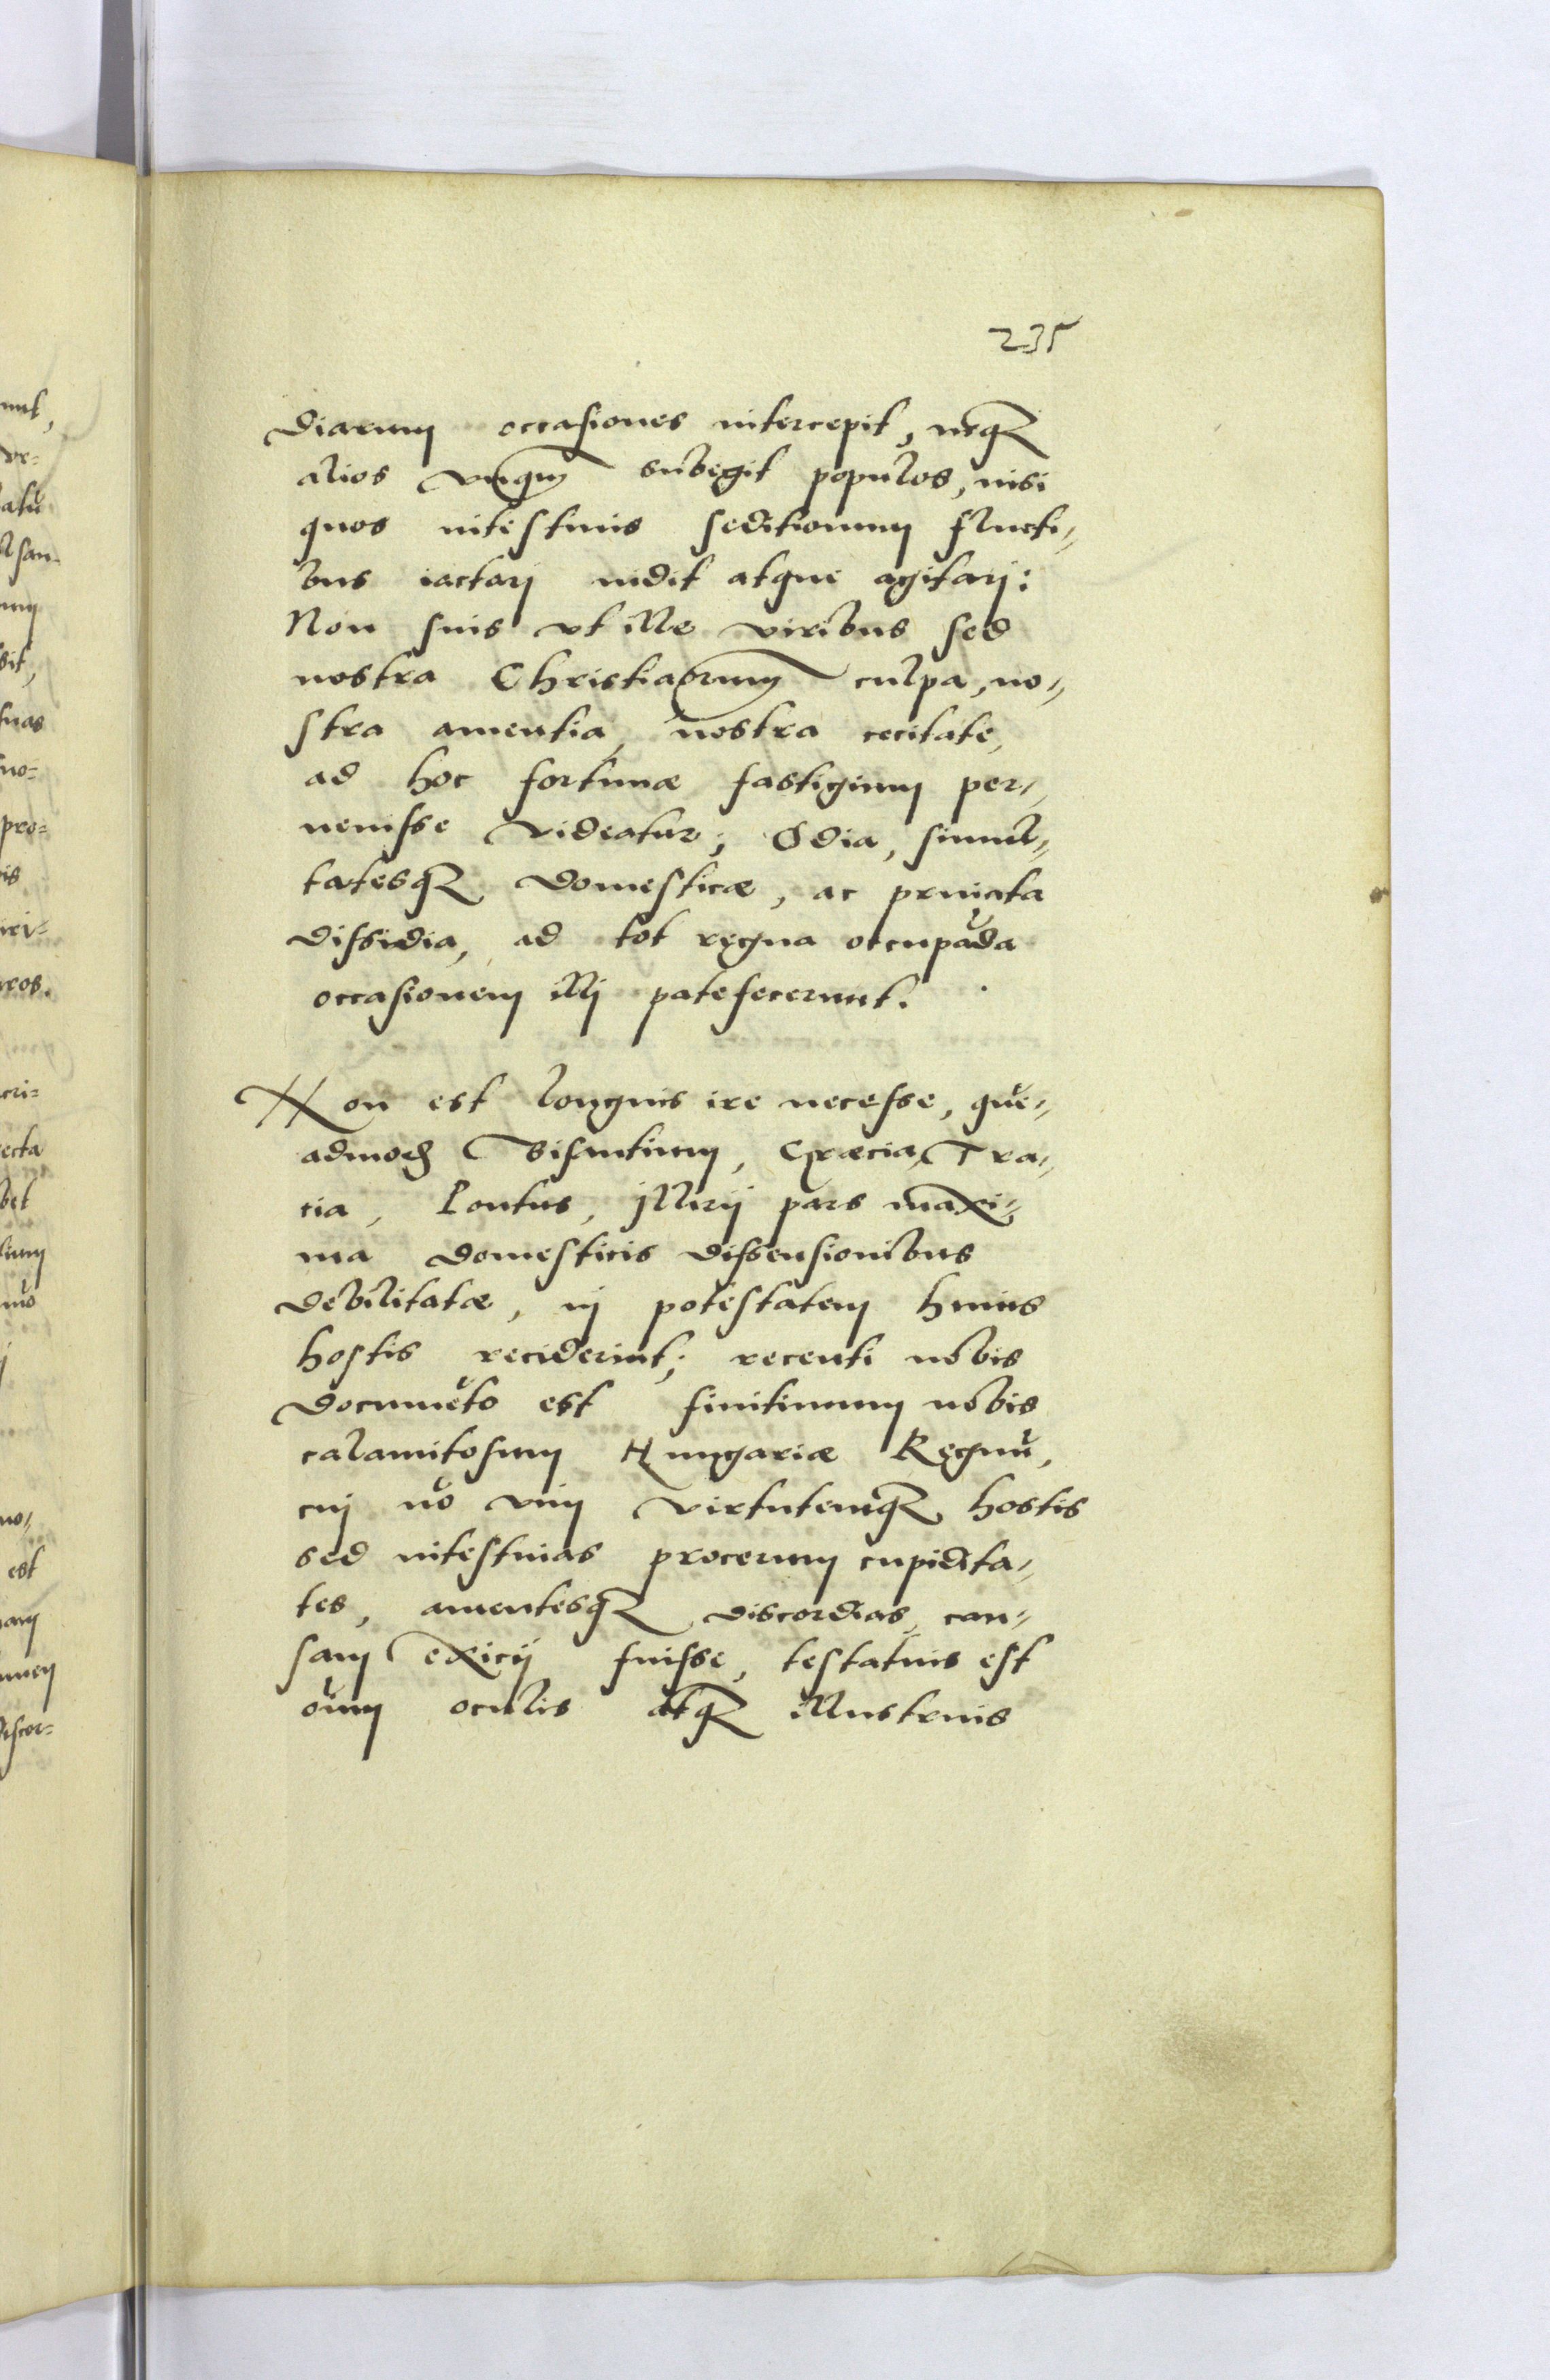 235
diarum occasiones intercepit, neqꝫ
alios vnqm̃ subegit populos, nisi
quos intestinis seditionum flucti⸗
bus iactarj uidit atque agitarj:
Non suis vt ille viribus sed
nostra Christianorum culpa, no⸗
stra amentia, nostra cecitate,
ad hoc fortunæ fastigium per⸗
uenisse videatur; Odia, simul⸗
tatesqꝫ domesticæ, ac priuata
dissidia, ad tot regna occupãda
occasionem illj patefecerunt.
Non est longius ire necesse, quẽ⸗
admodũ Bisantium, Græcia, Tra⸗
cia, Pontus, Jllirij pars maxi⸗
ma domesticis dissensionibus
debilitatæ, in potestatem huius
hostis reciderint; recenti nobis
documẽto est finitimum nobis
calamitosum Hungariæ Regnũ,
cuj nõ vim virtutemqꝫ hostis
sed intestinas procerum cupidita⸗
tes, amentesqꝫ discordias, cau⸗
sam exicij fuisse, testatius est
oĩum oculis atqꝫ illustrius